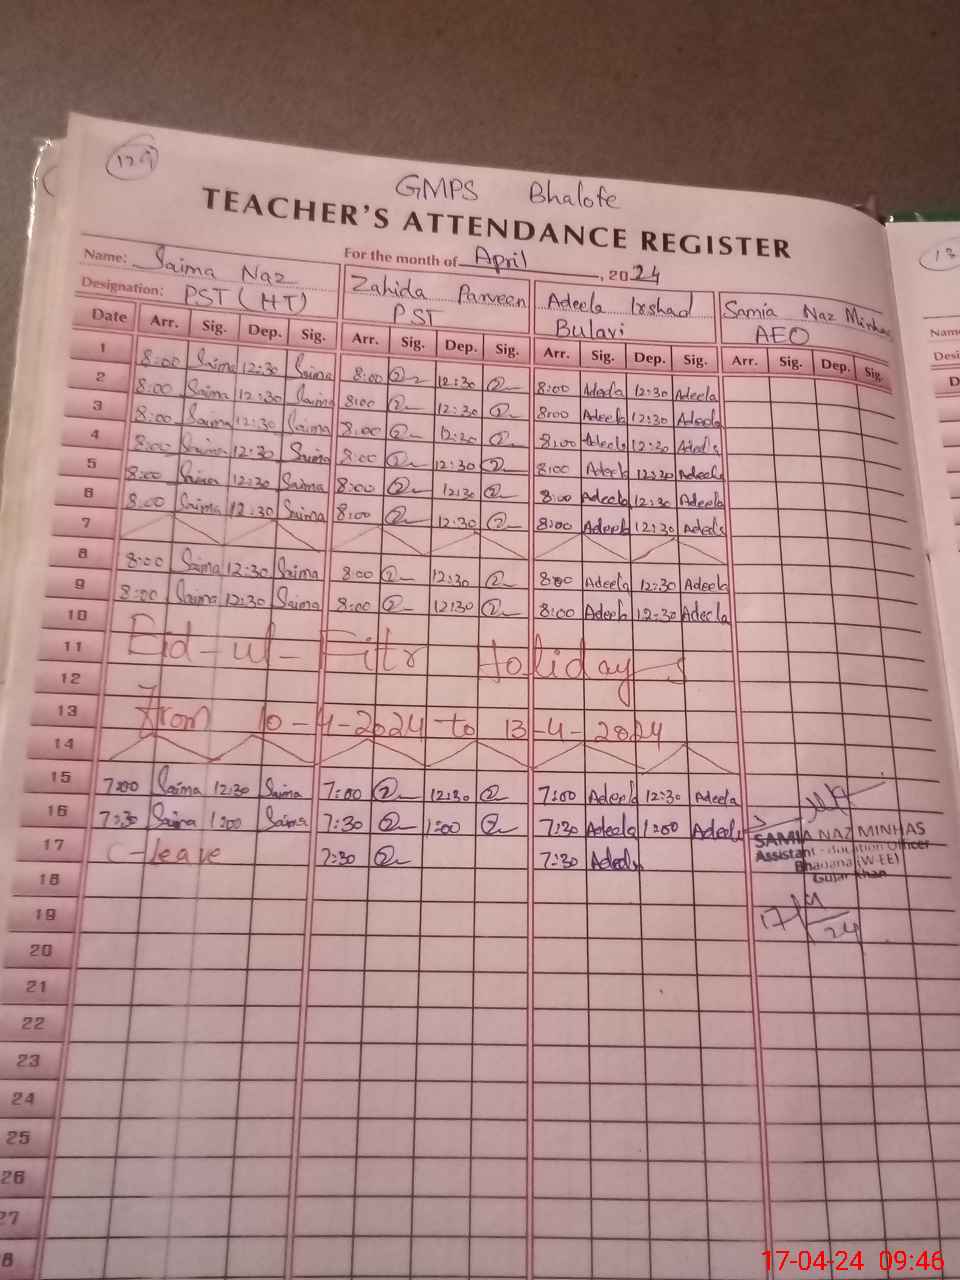 129
GMPS Bhalote
TEACHER'S ATTENDANCE REGISTER
Name: Saima Naz For the month of April, 2024
Designation: PST (HT) Zahida Parveen PST Adeela Irshad Bulavi Samia Naz Minhas AEO
Date Arr. Sig. Dep. Sig. Arr. Sig. Dep. Sig. Arr. Sig. Dep. Sig. Arr. Sig. Dep. Sig.
1 8:00 Saima 12:30 Saima 8:00 12:30 8:00 Adeela 12:30 Adeela
2 8:00 Saima 12:30 Saima 8:00 12:30 8:00 Adeela 12:30 Adeela
3 8:00 Saima 12:30 Saima 8:00 12:30 8:00 Adeela 12:30 Adeela
4 8:00 Saima 12:30 Saima 8:00 12:30 8:00 Adeela 12:30 Adeela
5 8:00 Saima 12:30 Saima 8:00 12:30 8:00 Adeela 12:30 Adeela
6 8:00 Saima 12:30 Saima 8:00 12:30 8:00 Adeela 12:30 Adeela
7
8 8:00 Saima 12:30 Saima 8:00 12:30 8:00 Adeela 12:30 Adeela
9 8:00 Saima 12:30 Saima 8:00 12:30 8:00 Adeela 12:30 Adeela
10
11 Eid-ul-Fitr Holidays
12
13 From 10-4-2024 to 13-4-2024
14
15 7:00 Saima 12:30 Saima 7:00 12:30 7:00 Adeela 12:30 Adeela
16 7:30 Saima 1:00 Saima 7:30 1:00 7:30 Adeela 1:00 Adeela
SAMIA NAZ MINHAS
17 C-leave 7:30 7:30 Adeela Assistant Education Officer
Bhadana (W-EE)
Gujar Khan
18
17/4/24
19
20
21
22
23
24
25
26
27
8
17-04-24 09:46